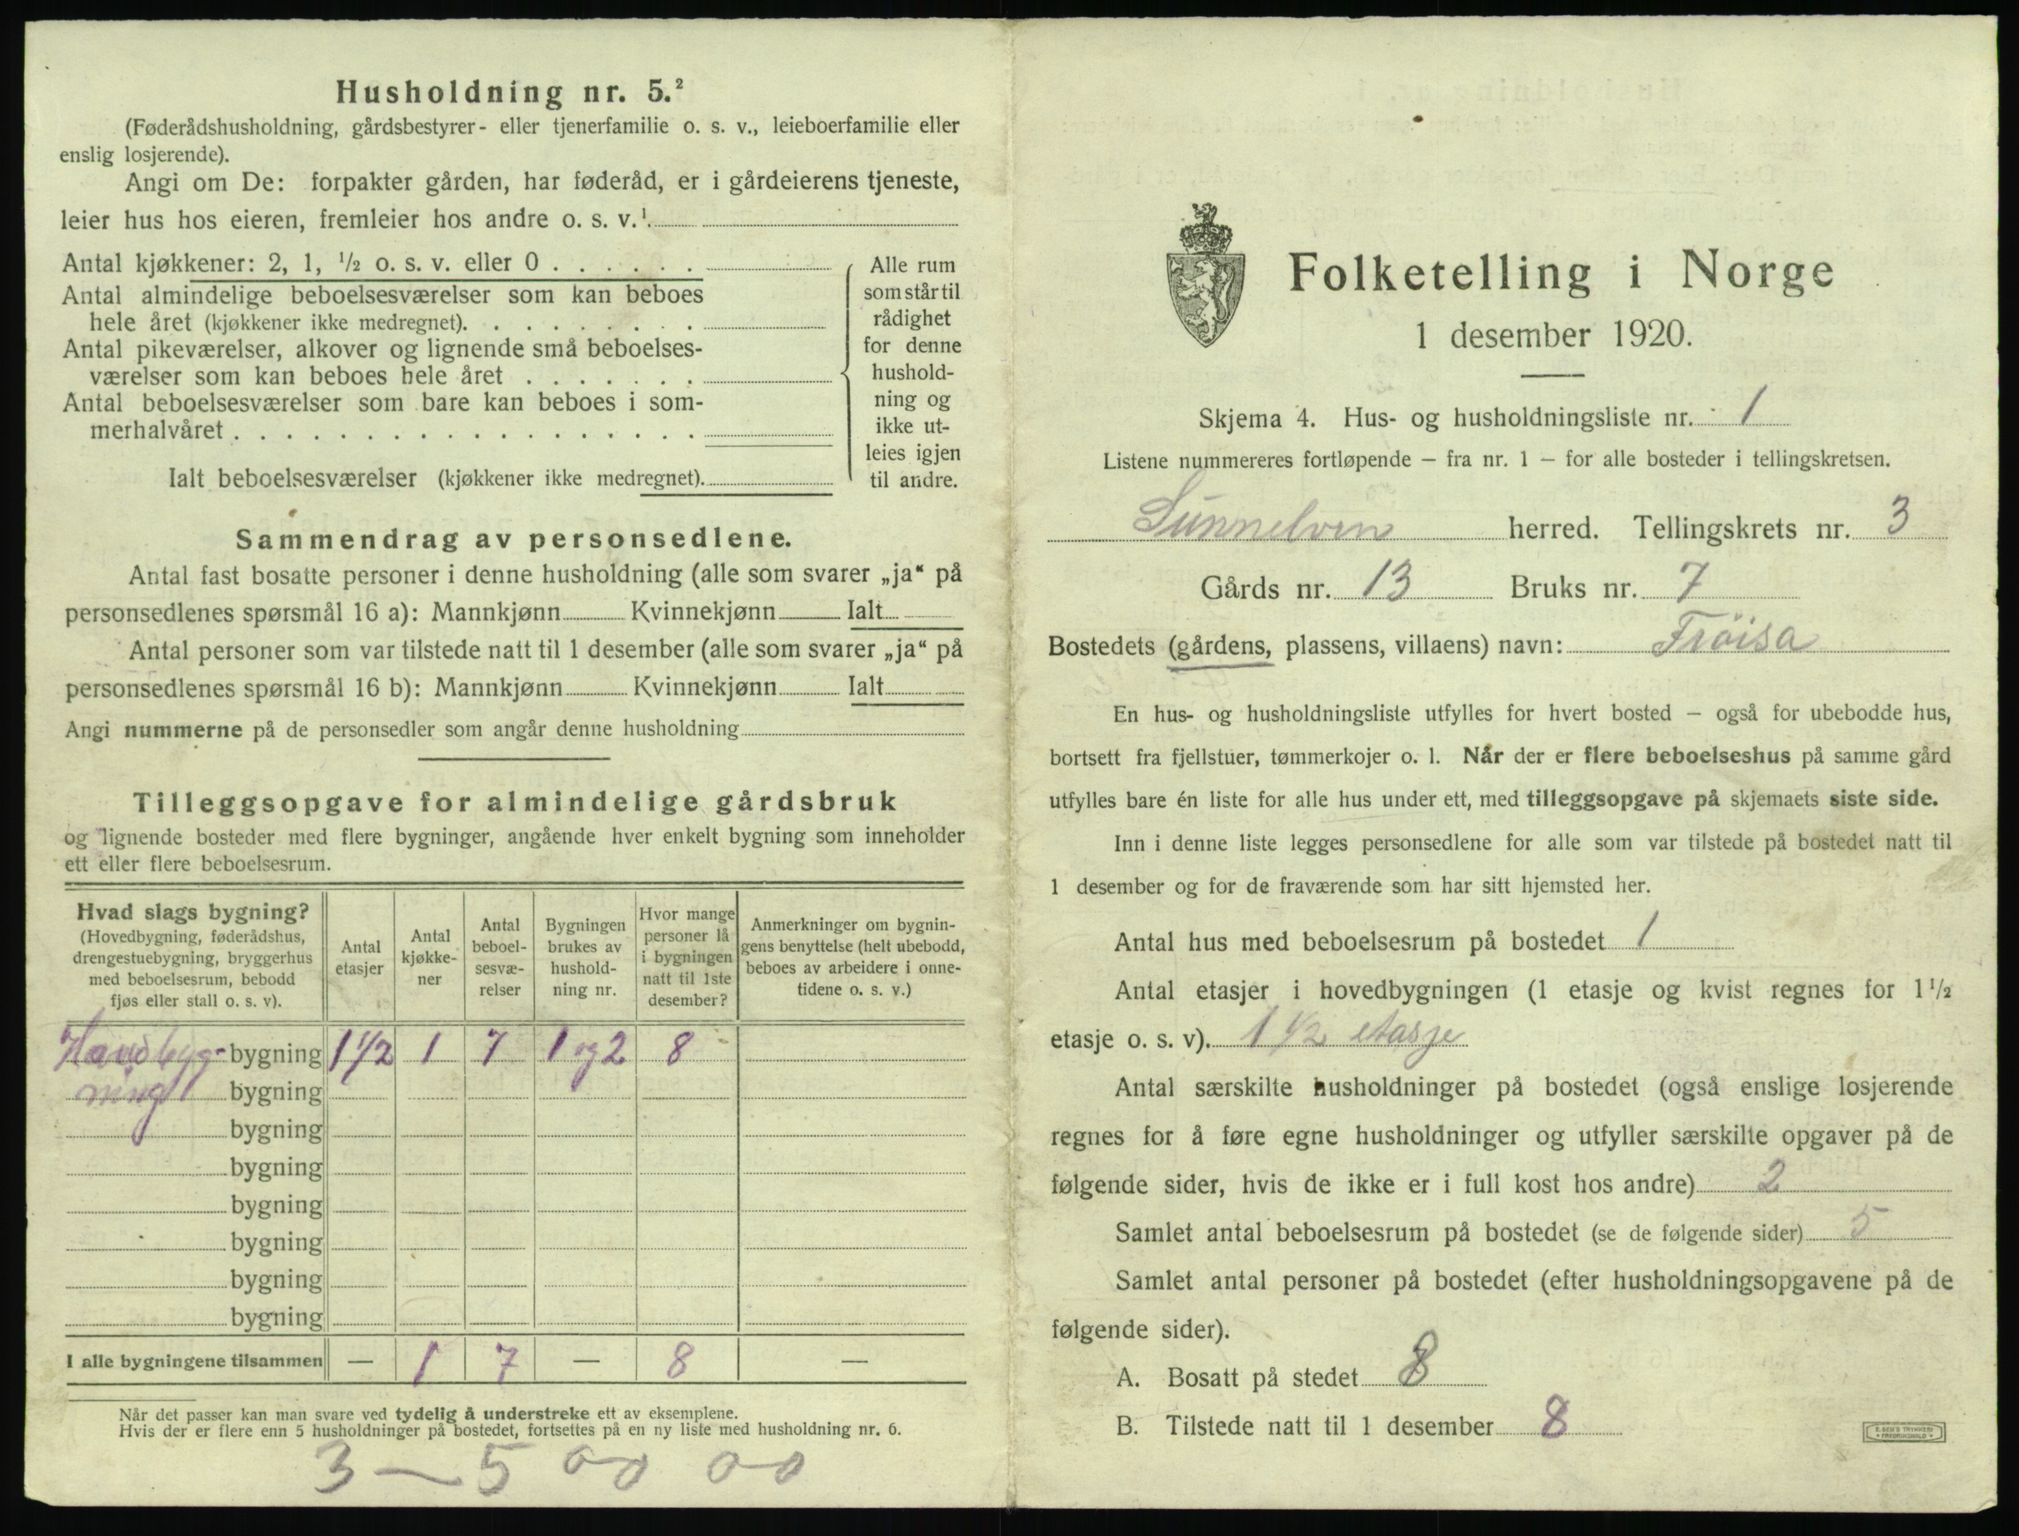 Husholdning nr. 5.²
(Føderådshusholdning, gårdsbestyrer- eller tjenerfamilie o. s. v., leieboerfamilie eller
enslig losjerende).
Angi om De: forpakter gården, har føderåd, er i gårdeierens tjeneste,
leier hus hos eieren, fremleier hos andre o. s. v.¹
Antal kjøkkener: 2, 1, ½ o. s. v. eller 0 . . . . . .
Antal almindelige beboelsesværelser som kan beboes
hele året (kjøkkener ikke medregnet). . . . . . . . .
Antal pikeværelser, alkover og lignende små beboelses-
værelser som kan beboes hele året . . . . . . .
Antal beboelsesværelser som bare kan beboes i som-
merhalvåret . . . . . . . . . . . . . . . . . .
Ialt beboelsesværelser (kjøkkener ikke medregnet).
Alle rum
som står til
rådighet
for denne
hushold-
ning og
ikke ut-
leies igjen
til andre.
Sammendrag av personsedlene.
Antal fast bosatte personer i denne husholdning (alle som svarer „ja“ på
personsedlenes spørsmål 16 a): Mannkjønn Kvinnekjønn Ialt
Antal personer som var tilstede natt til 1 desember (alle som svarer „ja“ på
personsedlenes spørsmål 16 b): Mannkjønn Kvinnekjønn Ialt
Angi nummerne på de personsedler som angår denne husholdning
Tilleggsopgave for almindelige gårdsbruk
og lignende bosteder med flere bygninger, angående hver enkelt bygning som inneholder
ett eller flere beboelsesrum.
Hvad slags bygning?
(Hovedbygning, føderådshus,
drengestuebygning, bryggerhus
med beboelsesrum, bebodd
fjøs eller stall o. s. v).
Antal
etasjer
Antal
kjøkke-
ner
Antal
beboel-
sesvæ-
relser
Bygningen
brukes av
hushold-
ning nr.
Hvor mange
personer lå
i bygningen
natt til 1ste
desember?
Anmerkninger om bygnin-
gens benyttelse (helt ubebodd,
beboes av arbeidere i onne-
tidene o. s. v.)
bygning 1 1/2 1 7 1 og 2 8
ning bygning
bygning
bygning
bygning
bygning
bygning
bygning
I alle bygningene tilsammen — 1 7 — 8 —
Når det passer kan man svare ved tydelig å understreke ett av eksemplene.
Hvis der er flere enn 5 husholdninger på bostedet, fortsettes på en ny liste med husholdning nr. 6.
3 — 5 00 00
Folketelling i Norge
1 desember 1920.
Skjema 4. Hus- og husholdningsliste nr. 1
Listene nummereres fortløpende — fra nr. 1 — for alle bosteder i tellingskretsen.
Sunnelven herred. Tellingskrets nr. 3
Gårds nr. 13 Bruks nr. 7
Bostedets (gårdens, plassens, villaens) navn: Fröisa
En hus- og husholdningsliste utfylles for hvert bosted — også for ubebodde hus,
bortsett fra fjellstuer, tømmerkojer o. l. Når der er flere beboelseshus på samme gård
utfylles bare én liste for alle hus under ett, med tilleggsopgave på skjemaets siste side.
Inn i denne liste legges personsedlene for alle som var tilstede på bostedet natt til
1 desember og for de fraværende som har sitt hjemsted her.
Antal hus med beboelsesrum på bostedet 1
Antal etasjer i hovedbygningen (1 etasje og kvist regnes for 1½
etasje o. s. v). 1 1/2 etasje
Antal særskilte husholdninger på bostedet (også enslige losjerende
regnes for å føre egne husholdninger og utfyller særskilte opgaver på de
følgende sider, hvis de ikke er i full kost hos andre) 2
Samlet antal beboelsesrum på bostedet (se de følgende sider) 5
Samlet antal personer på bostedet (efter husholdningsopgavene på de
følgende sider).
A. Bosatt på stedet 8
B. Tilstede natt til 1 desember 8